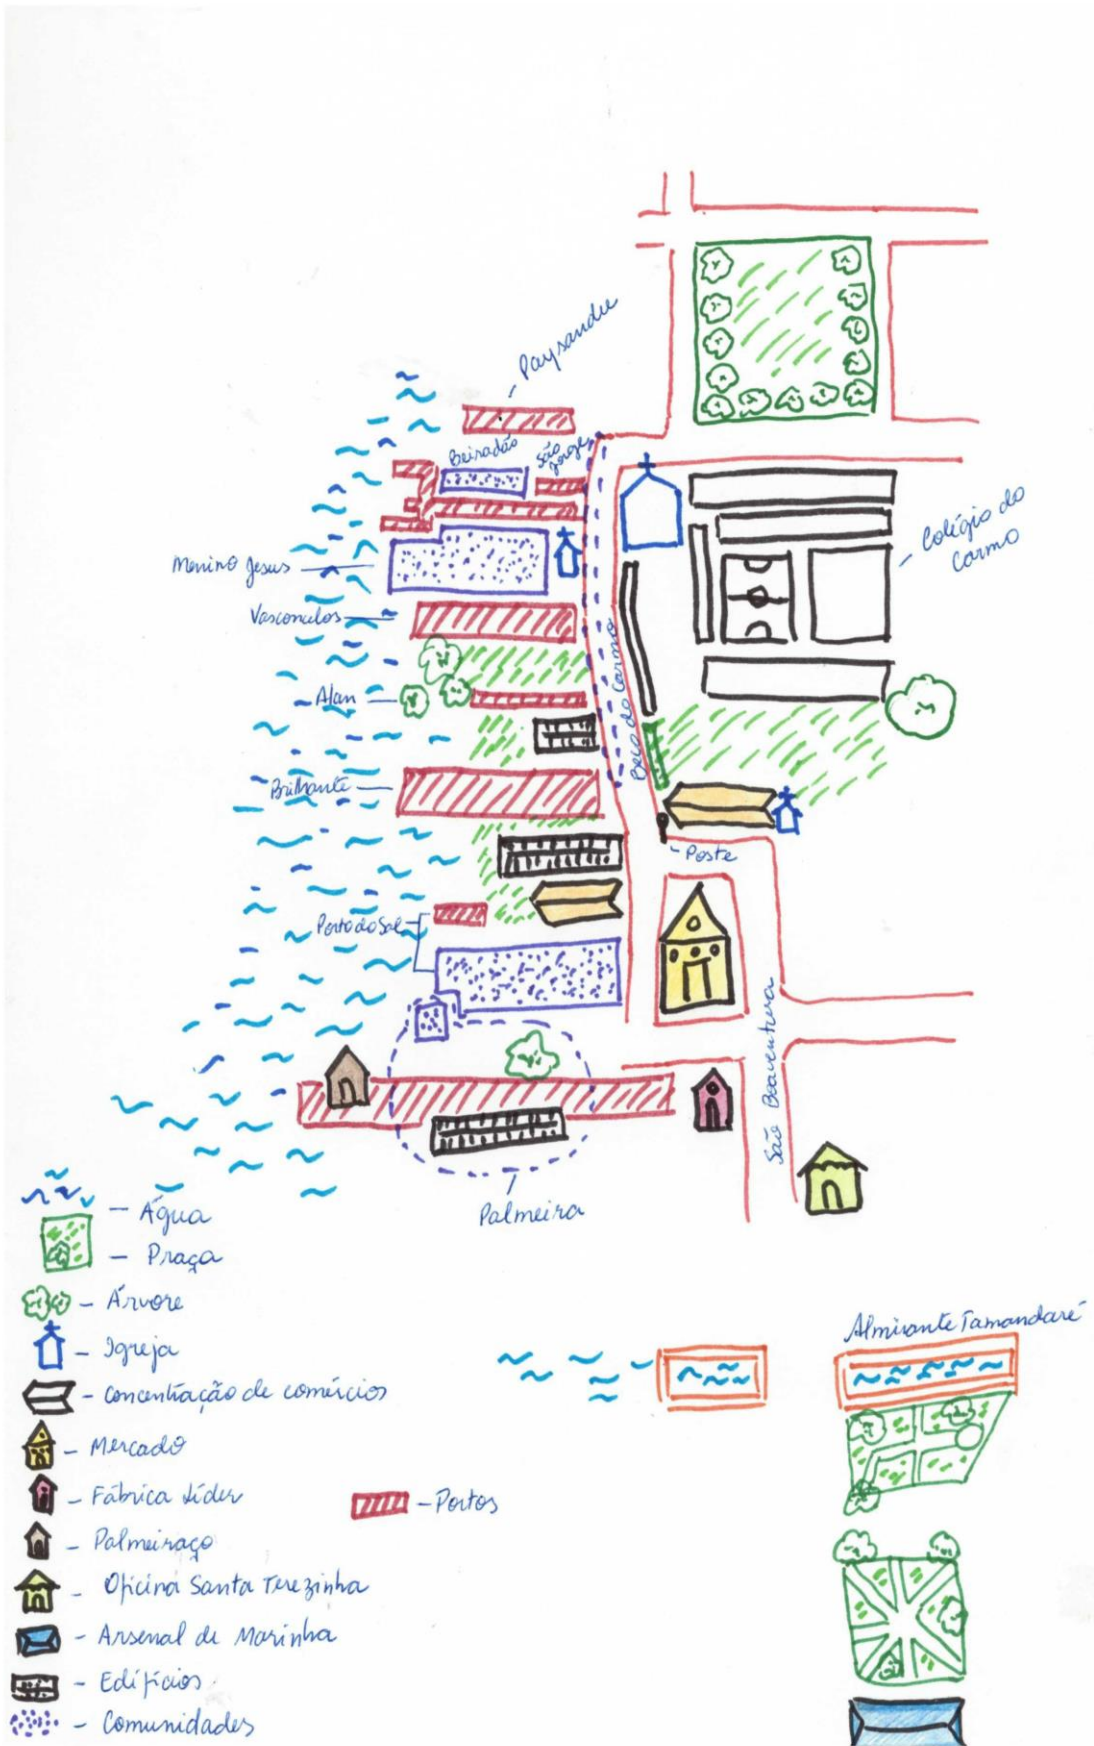 Paysandu
Beiradão
São
Jorge
Colégio do
Carmo
Menino Jesus
Vasconcelos
Beco do Carmo
Alan
Brilhante
Poste
Porto do Sal
São Boaventura
Palmeira
- Água
- Praça
- Árvore
- Igreja
- Concentração de comércios
- Mercado
- Fábrica Líder
- Portos
- Palmeiraço
- Oficina Santa Terezinha
- Arsenal de Marinha
- Edifícios
- Comunidades
Almirante Tamandaré